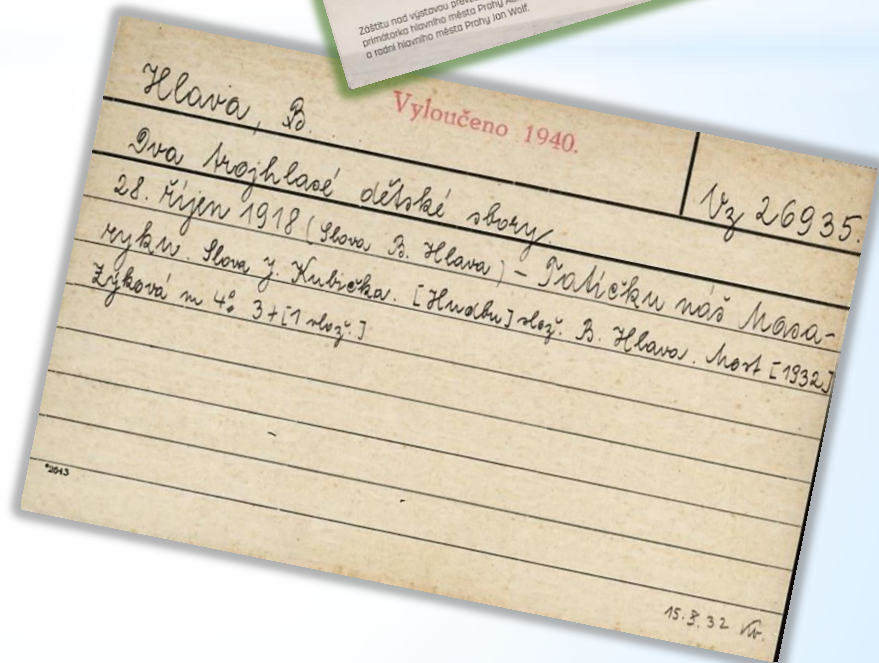 Záštitu nad výstavou
primátorka hlavního města Prahy
a radní hlavního města Prahy Jan Wolf.
Hlava, B.
Vyloučeno 1940.
Vz 26935.
Dva trojhlasé dětské sbory.
28. říjen 1918 (Slova B. Hlava) - Tatíčku náš Masa-
ryku. Slova J. Kubička. [Hudbu] slož. B. Hlava. Most [1932]
Zyková m 4° 3+[1 slož.]
*2043
15. 32